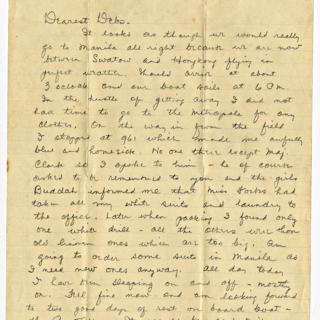 Dearest Debs.
It looks as though we would really
go to Manila all right because we are now
between Swatow and Hongkong flying in
perfect weather. Should arrive at about
3 oclock and our boat sails at 6 P.M.
In the hustle of getting away I did not
had time to go to the Metropole for any
clothes. On the way in from the field
I stopped at 961 which made me fearfully
blue and homesick. No one there except Maj.
Clark so I spoke to him - he of course
asked to be remembered to you and the girls
Buddah informed me that Miss had
taken all my white suits and laundry to
the office. Later when packing I found only
one white drill - all the others were
old linen ones which are too big. Am
going to order some suits in Manila as
I need new ones anyway. All day today
I have been sleeping on and off - mostly
on. Feel fine now and am looking forward
to two good days of rest on board boat -